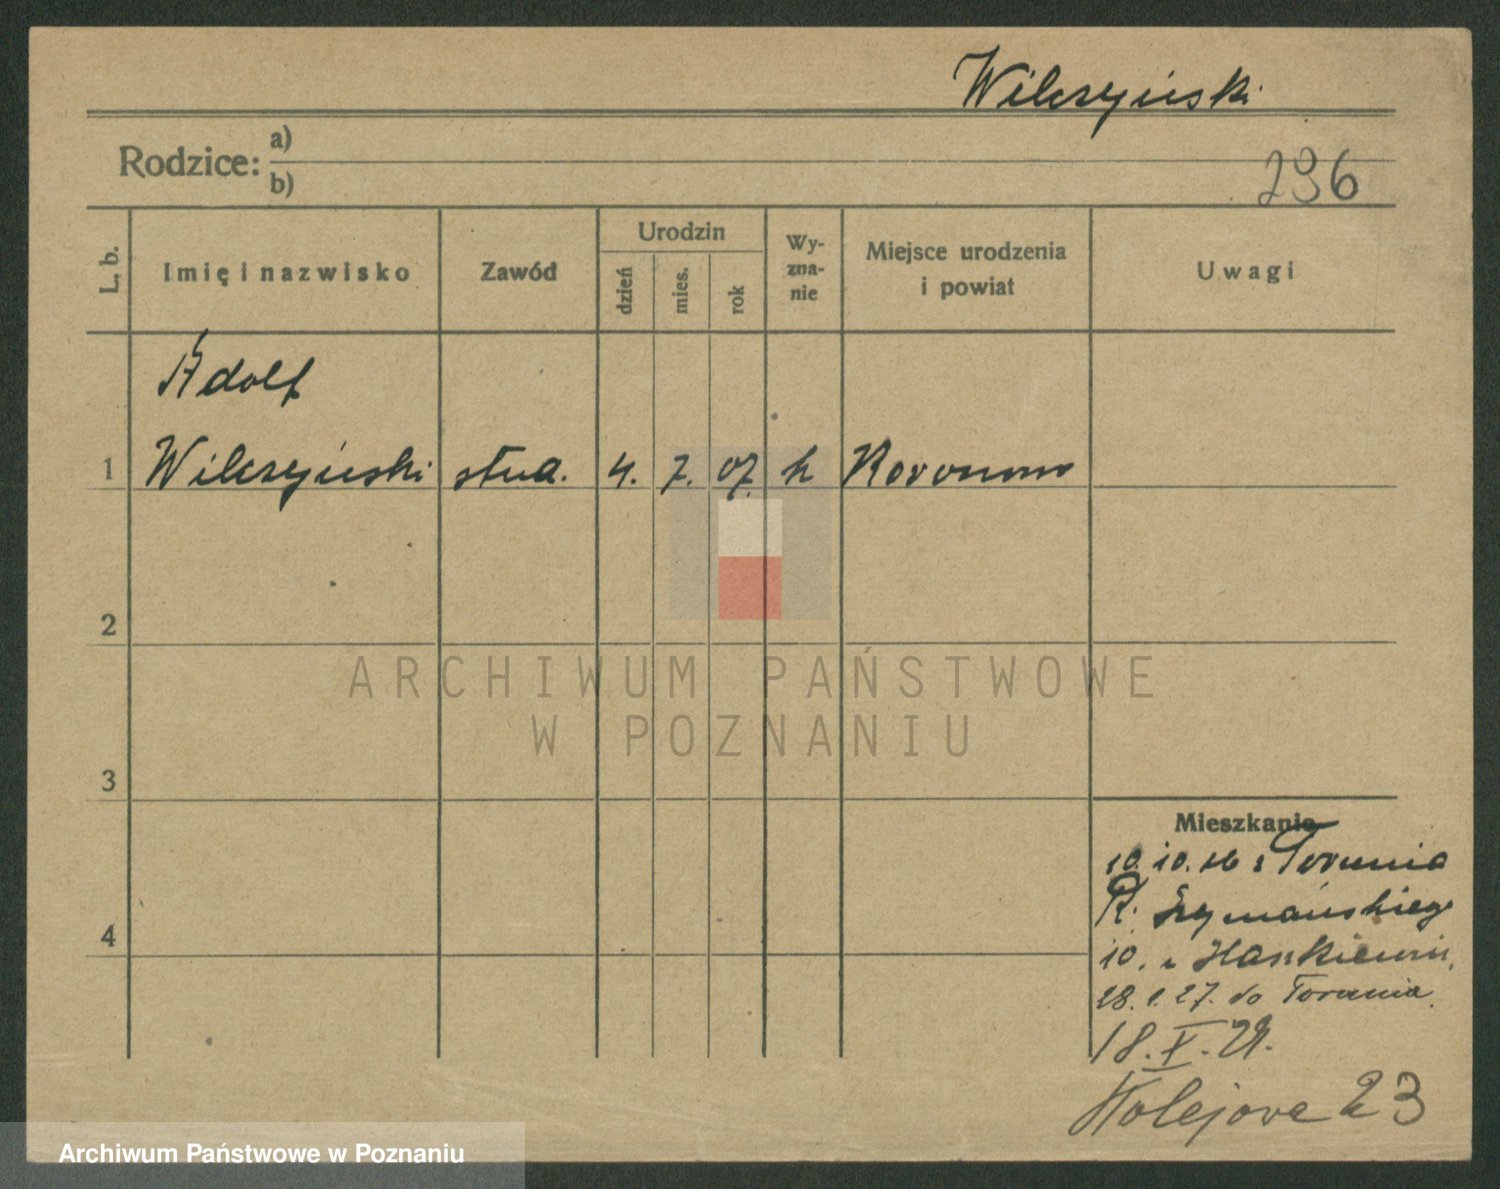 Wilczyński
296
Rodzice: a)
b)
L. b.
Imię i nazwisko
Zawód
Urodzin
dzień
mies.
rok
Wy-
zna-
nie
Miejsce urodzenia
i powiat
Uwagi
Adolf
1 Wilczyński stud. 4. 7. 07. k Koronowo
2
3
4
Mieszkanie
10. 10. 26 z Torunia
R. Szymańskiego
10. u Haskiewicz.
28. 1. 27. do Torunia.
18. X. 28.
Kolejowa 23
ARCHIWUM PAŃSTWOWE
W POZNANIU
Archiwum Państwowe w Poznaniu